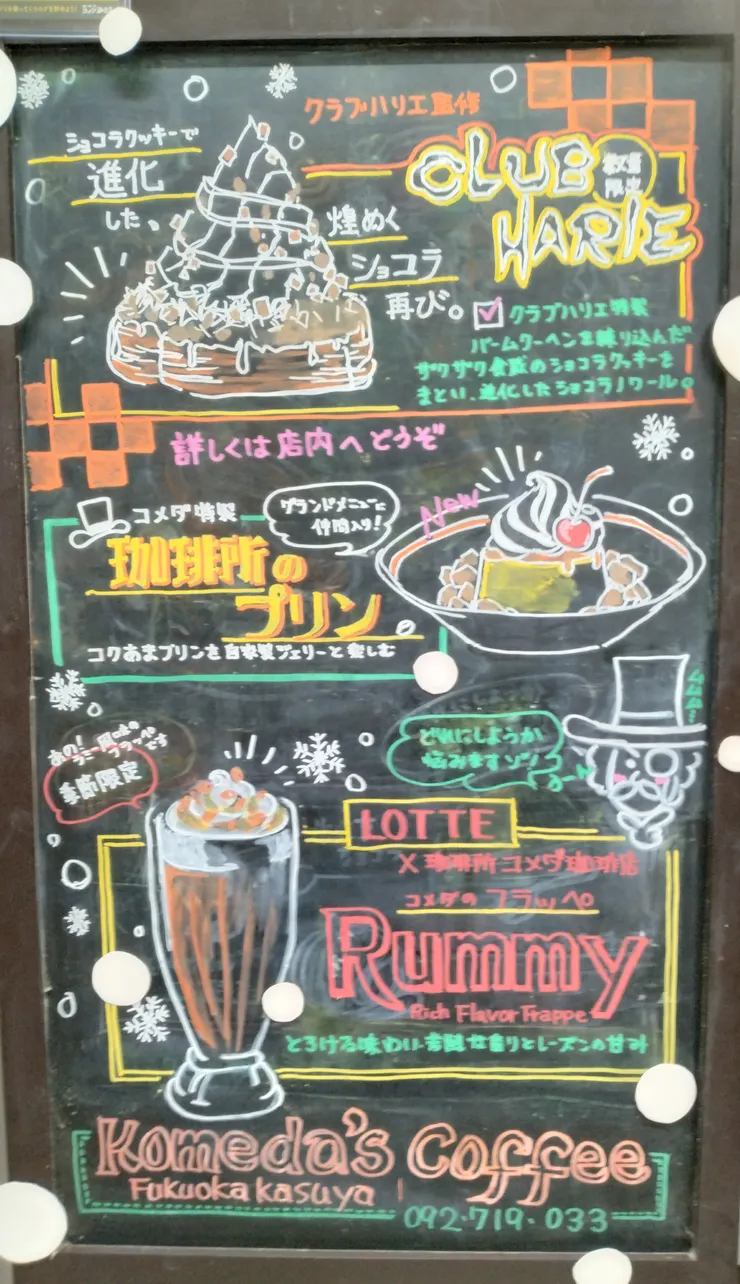 クラブハリエ監修
CLUB
HARIE
数量
限定
ショコラクッキーで
進化
した、
煌めく
ショコラ
再び。
クラブハリエ特製
バームクーヘンを練り込んだ
ザクザク食感のショコラクッキーを
まとい、進化したショコラノワール。
詳しくは店内へどうぞ
コメダ特製
グランドメニューに
仲間入り!
New
珈琲所の
プリン
コクあまプリンを自家製ジェリーと楽しむ
どれにしようか
悩みますゾ〜
あの!
ラミーフラッペです
季節限定
LOTTE
×珈琲所コメダ珈琲店
コメダの フラッペ
Rummy
Rich Flavor Frappe
とろける味わい 芳醇な香りとレーズンの甘み
Komeda's Coffee
Fukuoka Kasuya
092-719-033